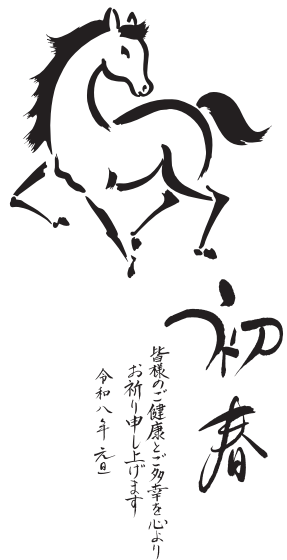 初春
皆様のご健康とご多幸を心より
お祈り申し上げます
令和八年 元旦